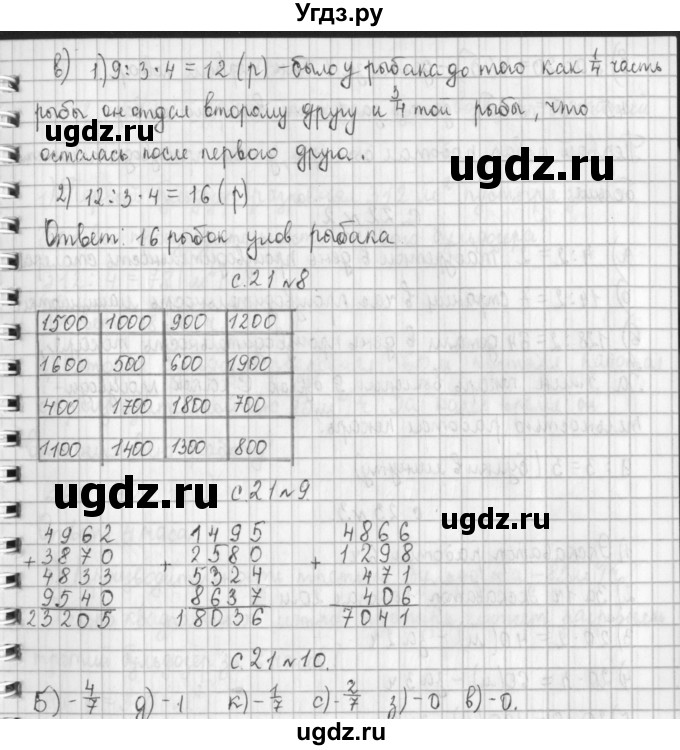 Угдз.ру
в) 1) 9 : 3 · 4 = 12 (р) - было у рыбака до того как 1/4 часть
рыбы он отдал второму другу и 3/4 той рыбы, что
осталась после первого друга.
ugdz.ru
ugdz.ru
2) 12 : 3 · 4 = 16 (р)
Ответ: 16 рыбок улов рыбака
с. 21 №8.
1500 1000 900 1200
1600 500 600 1900
400 1700 1800 700
1100 1400 1300 800
ugdz.ru
с 21 №9
ugdz.ru
4962 1495 4866
+ 3870 + 2580 + 1298
4833 5324 471
9540 8637 406
23205 18036 7041
с 21 №10.
Б) - 4/7 д) - 1 к) - 1/7 с) - 2/7 з) - 0 в) - 0.
ugdz.ru